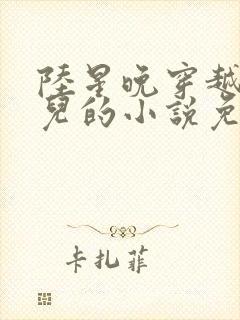 陸星晚穿越
兒的小說免
卡扎菲